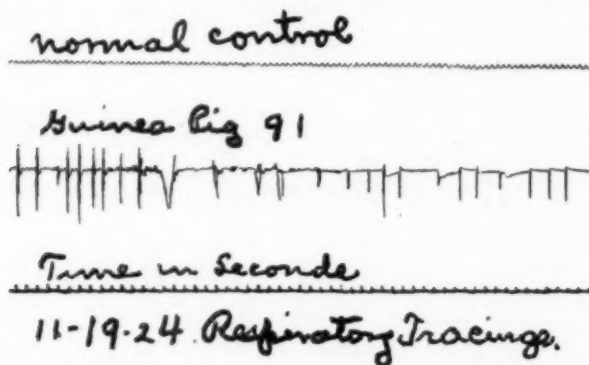 normal control
Guinea Pig 91
Time in Seconds
11-19-24. Respiratory Tracings.